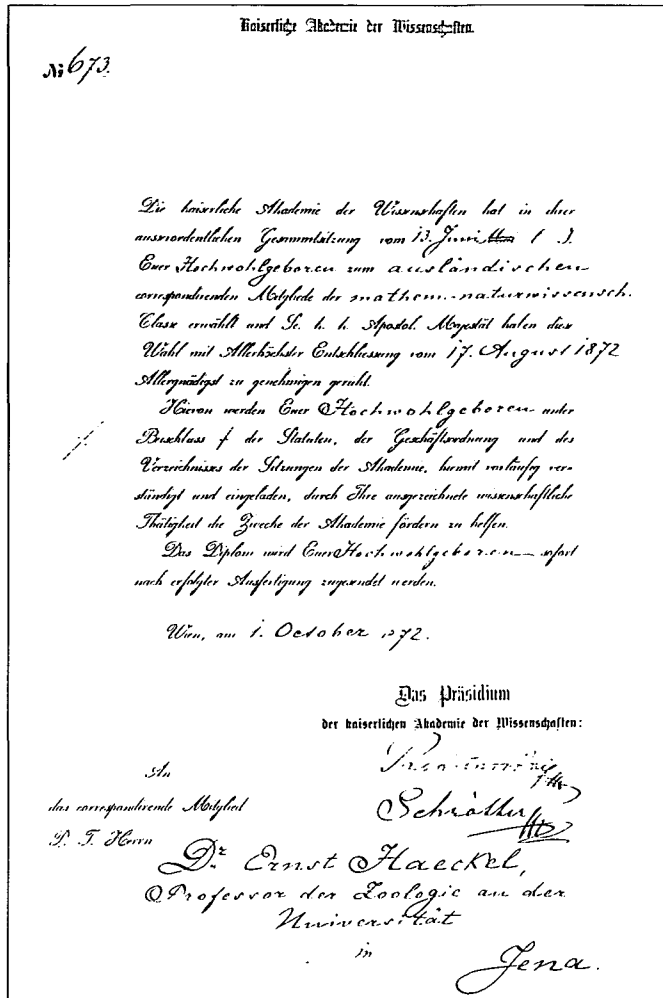 Kaiserliche Akademie der Wissenschaften.
№ 673.
Die kaiserliche Akademie der Wissenschaften hat in ihrer
ausserordentlichen Gesammtsitzung vom 13. Juni l. J.
Euer Hochwohlgeboren zum ausländischen
correspondirenden Mitgliede der mathem.-naturwissensch.
Classe erwählt und Se. k. k. Apostol. Majestät haben diese
Wahl mit Allerhöchster Entschliessung vom 17. August 1872
Allergnädigst zu genehmigen geruht.
Hievon werden Euer Hochwohlgeboren unter
Beischluss der Statuten, der Geschäftsordnung und des
Verzeichnisses der Sitzungen der Akademie, hiemit vorläufig ver-
ständigt und eingeladen, durch Ihre ausgezeichnete wissenschaftliche
Thätigkeit die Zwecke der Akademie fördern zu helfen.
Das Diplom wird Euer Hochwohlgeboren sofort
nach erfolgter Ausfertigung zugesendet werden.
Wien, am 1. October 1872.
Das Präsidium
der kaiserlichen Akademie der Wissenschaften:
Schrötter
An
das correspondirende Mitglied
P. T. Herrn
Dr Ernst Haeckel,
Professor der Zoologie an der
Universität
in
Jena.